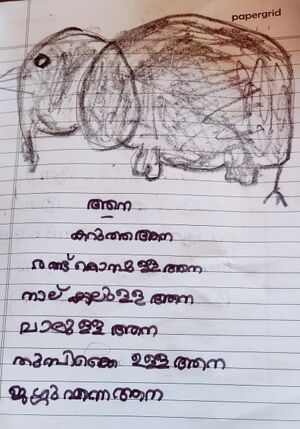 papergrid
ആന
കറുത്ത ആന
രണ്ട് കൊമ്പുള്ള ആന
നാല് കാലുള്ള ആന
വാലുള്ള ആന
തുമ്പികൈ ഉള്ള ആന
ആന